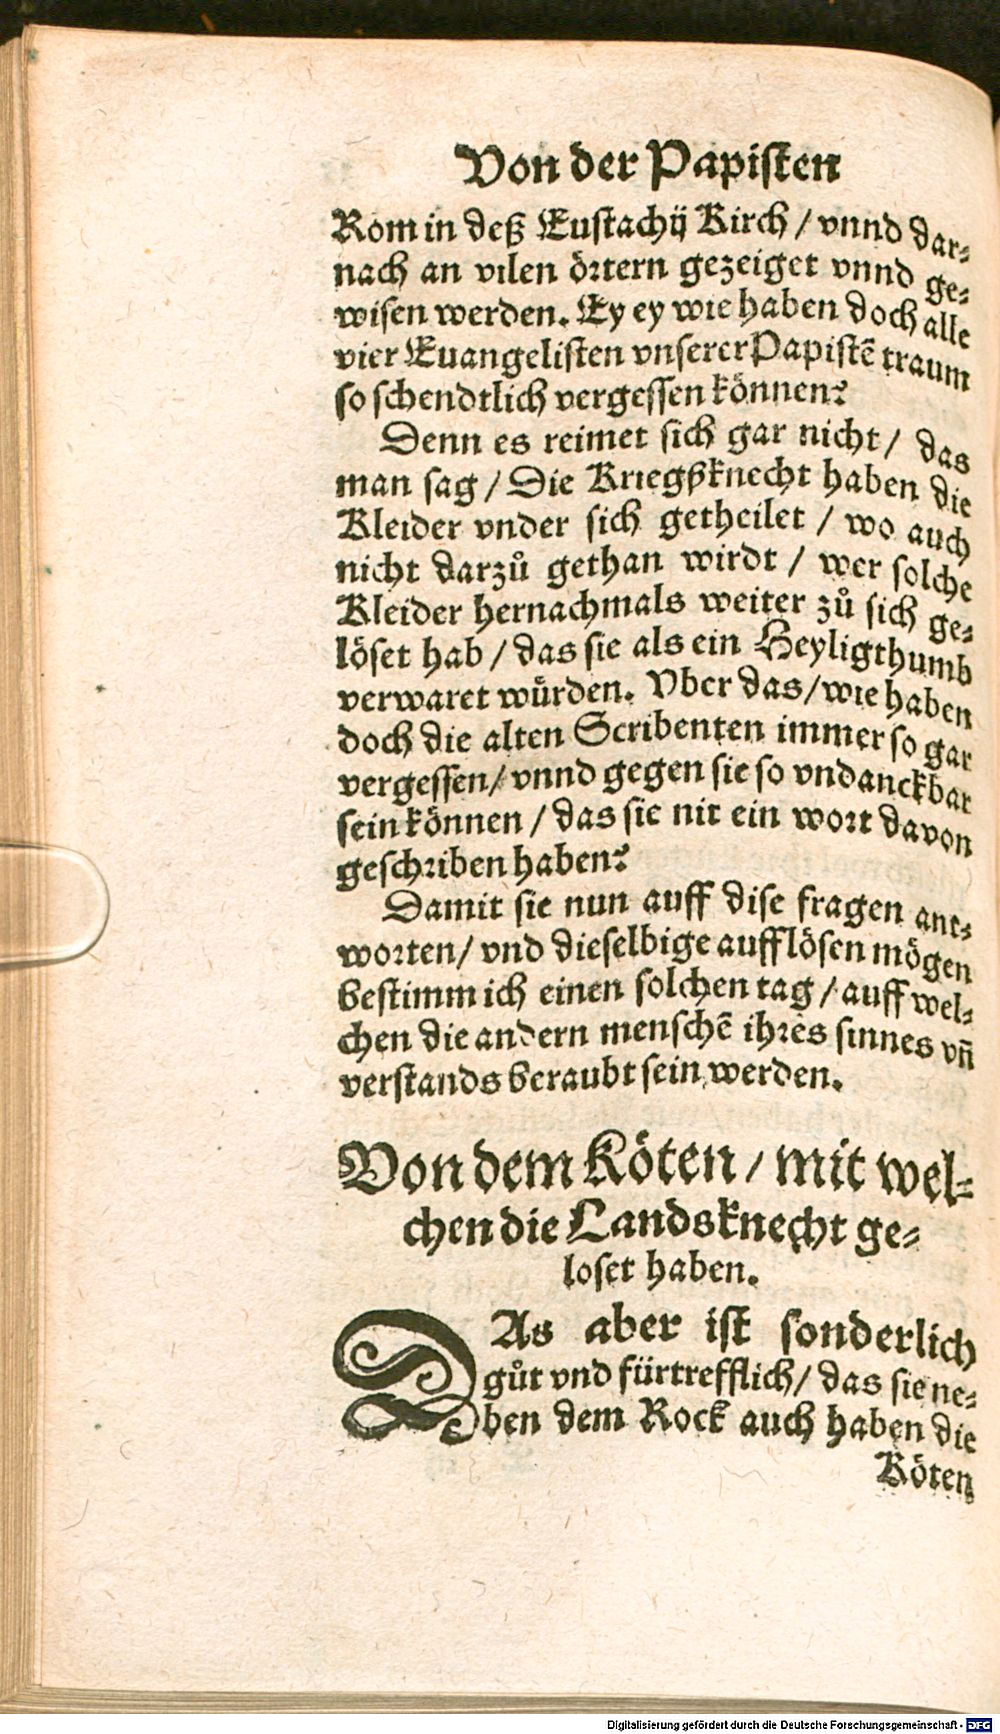 Von der Papisten
Rom in deß Eustachij Kirch / vnnd dar⸗
nach an vilen örtern gezeiget vnnd ge⸗
wisen werden. Ey ey wie haben doch alle
vier Euangelisten vnserer Papistē traum
so schendtlich vergessen können?
Denn es reimet sich gar nicht / das
man sag / Die Kriegßknecht haben die
Kleider vnder sich getheilet / wo auch
nicht darzů gethan wirdt / wer solche
Kleider hernachmals weiter zů sich ge⸗
löset hab / das sie als ein Heyligthumb
verwaret würden. Vber das / wie haben
doch die alten Scribenten immer so gar
vergessen / vnnd gegen sie so vndanckbar
sein können / das sie nit ein wort davon
geschriben haben?
Damit sie nun auff dise fragen ant⸗
worten / vnd dieselbige aufflösen mögen
bestimm ich einen solchen tag / auff wel⸗
chen die andern menschē ihres sinnes vñ
verstands beraubt sein werden.
Von dem Köten / mit wel⸗
chen die Landsknecht ge⸗
loset haben.
DAs aber ist sonderlich
gůt vnd fürtrefflich / das sie ne⸗
ben dem Rock auch haben die
Köten
Digitalisierung gefördert durch die Deutsche Forschungsgemeinschaft - DFG